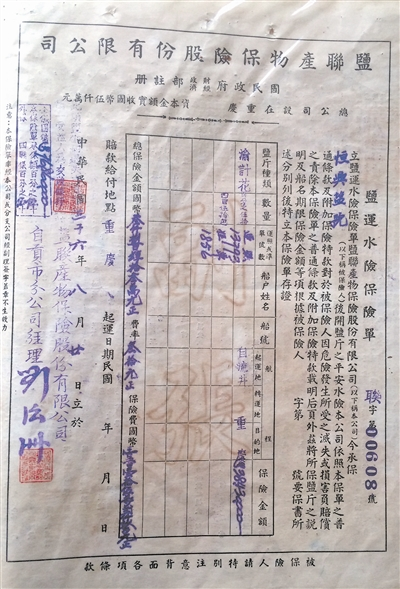 鹽聯產物保險股份有限公司
國民政府財政部經濟部註册
資本金額實收國幣伍仟萬元
總公司設在重慶
鹽運水險保險單
聯字第00608號
立鹽運水險保險單鹽聯產物保險股份有限公司(以下稱本公司)今承保
(以下稱被保險人)後開鹽斤之平安水險本公司依照本保單之普
通條款及附加保險特款對於被保險人因危險發生所受之滅失或損害負賠償
之責除本保險單之普通條款及附加保險特款載明后頁外茲將所保鹽斤之說
明及船名期限保險金額等項根據被保險人 字第 號要保書所
述分別列後特立本保險單存證
鹽斤種類
數量
運照或單號數
船戶姓名
船號
航程
起運地
轉運地
目的地
保險金額
渝計花
1356
自流井
重慶
總保險金額國幣
費率
保險費國幣
賠款給付地點 重慶
起運日期民國 年 月 日
中華民國三十六年八月廿日立於
鹽聯產物保險股份有限公司
自貢市分公司經理
注意:本保險單非經本公司或分支公司經副理簽字蓋章不生效力
被保險人請特別注意背面各項條款